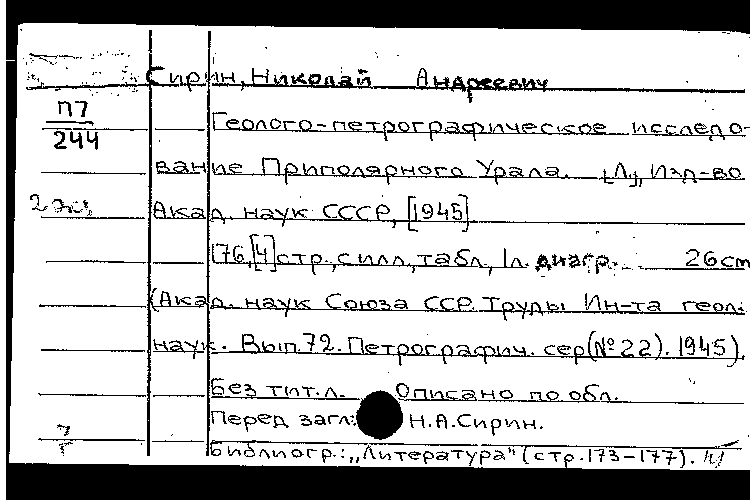 Сирин, Николай Андреевич
П7
244
Геолого-петрографическое исследо-
вание Приполярного Урала. [Л], Изд-во
2 экз
Акад. наук СССР, [1945]
176,[4]стр., с илл., табл., 1л. диагр. 26 cm
(Акад. наук Союза ССР. Труды Ин-та геол.
наук. Вып. 72. Петрографич. сер (№22). 1945).
Без тит. л. Описано по обл.
Перед загл: Н.А.Сирин.
Библиогр.: „Литература" (стр. 173-177).